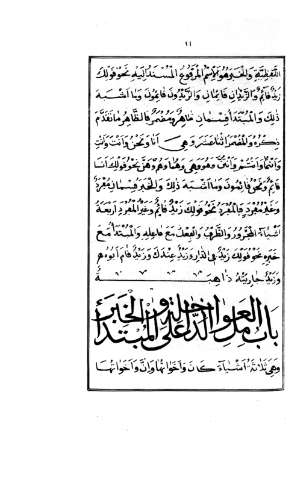 ١١
اللفظية والخبر هو الاسم المرفوع المسند اليه نحو قولك
زيد قائم والزيدان قائمان والزيدون قائمون وما اشبه
ذلك والمبتدأ قسمان ظاهر ومضمر فالظاهر ما تقدم
ذكره والمضمر اثنا عشر وهي انا ونحن وانت وانت
وانتما وانتم وانتن وهو وهي وهما وهم وهن نحو قولك انا
قائم ونحن قائمون وما اشبه ذلك والخبر قسمان مفرد
وغير مفرد فالمفرد نحو قولك زيد قائم وغير المفرد اربعة
اشياء المجرور والظرف والفعل مع فاعله والمبتدأ مع
خبره نحو قولك زيد في الدار وزيد عندك وزيد قام ابوه
وزيد جاريته ذاهبة
باب العوامل الداخلة على المبتدا والخبر
وهي ثلاثة اشياء كان واخواتها وان واخواتها